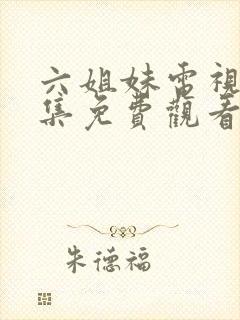 六姐妹電視
集免費觀看
朱德福